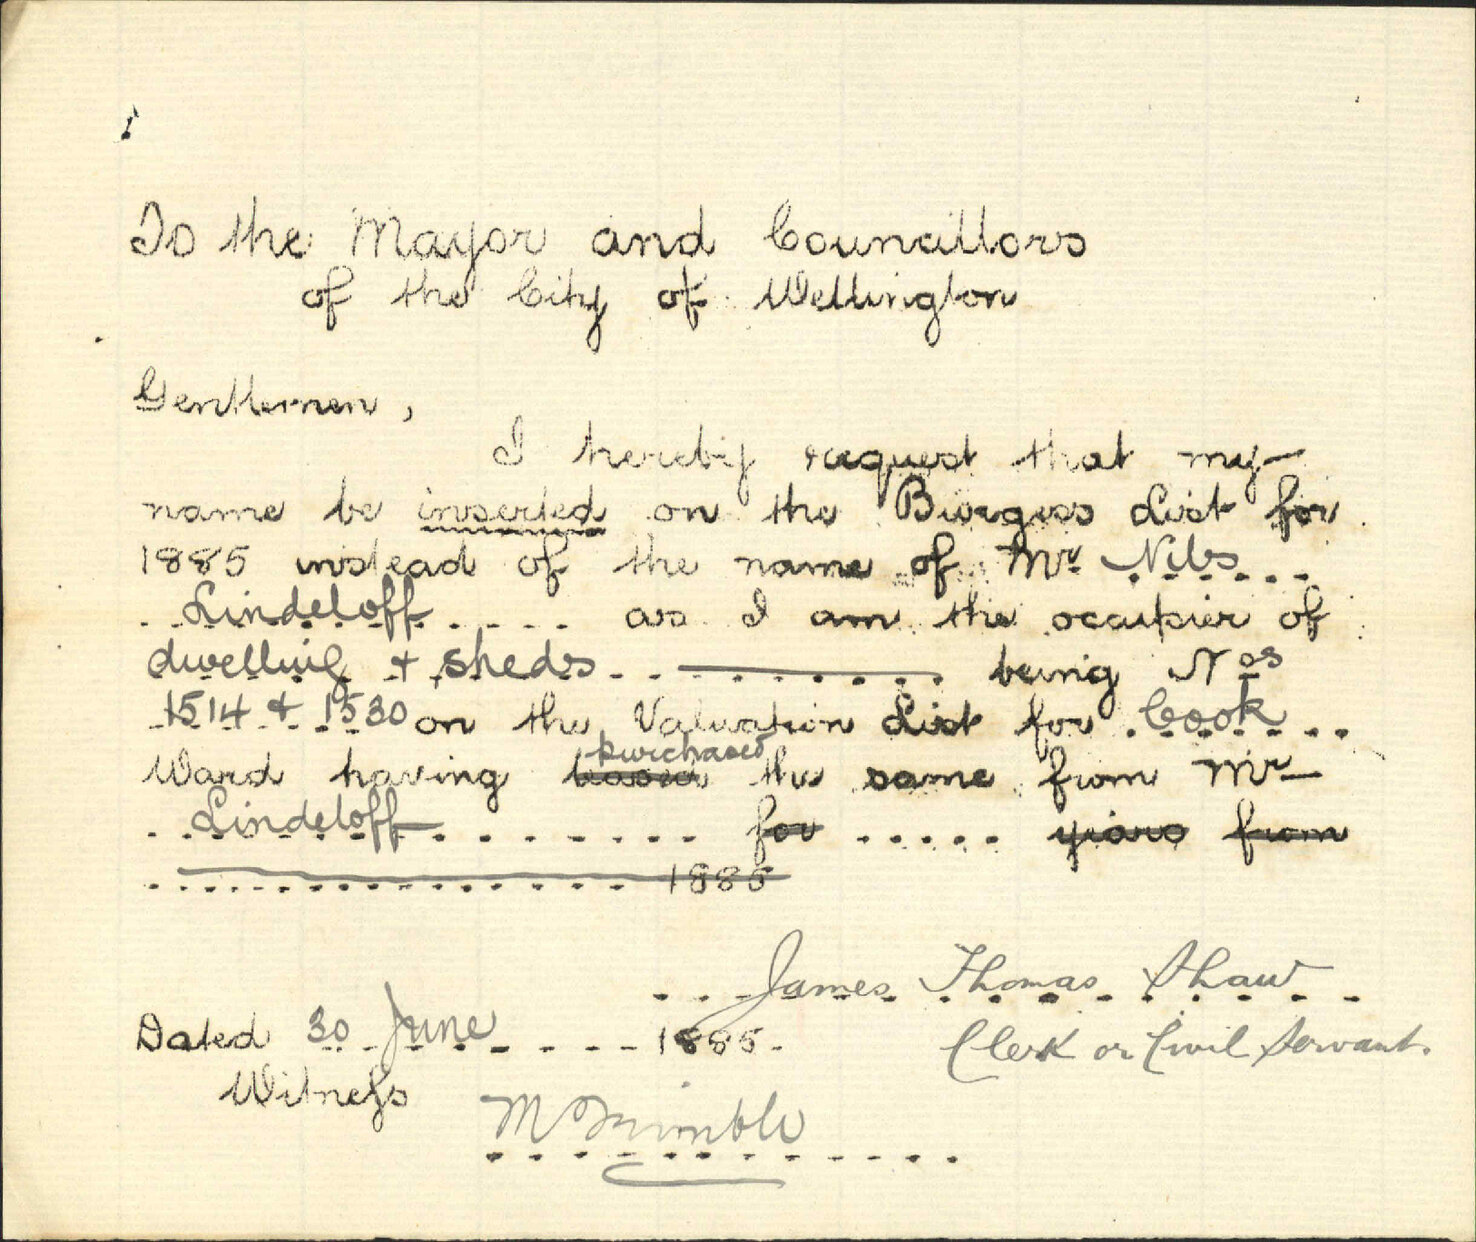 To the Mayor and Councillors
of the City of Wellington
Gentlemen,
I hereby request that my
name be inserted on the Burgess List for
1885 instead of the name of Mr Nils
Lindeloff as I am the occupier of
dwelling & sheds being Nos
1514 & 1530 on the Valuation List for Cook
purchased
Ward having leased the same from Mr
Lindeloff for ..... years from
1885
James Thomas Shaw
Dated 30 June 1885.
Clerk or Civil Servant.
Witness
M Trimble